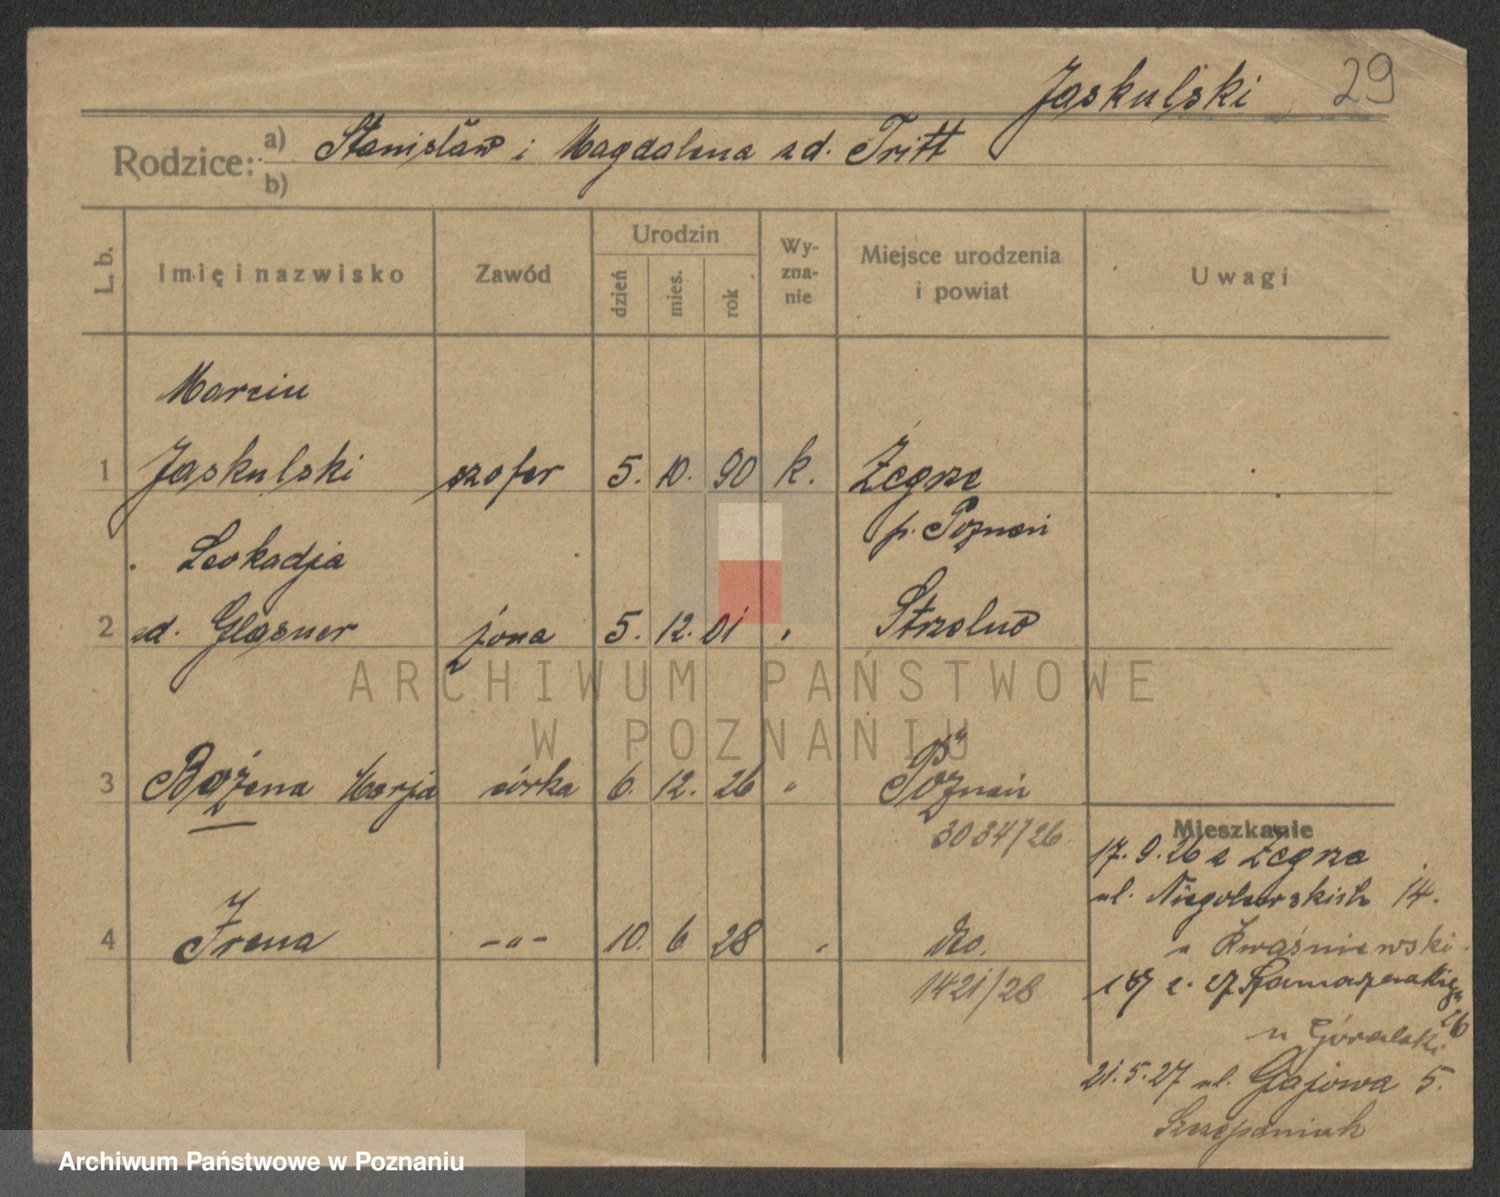 Jaskulski 29
Rodzice: a) Stanisław i Magdalena zd. Tritt
b)
L. b.
Imię i nazwisko
Zawód
Urodzin
dzień
mies.
rok
Wy-
zna-
nie
Miejsce urodzenia
i powiat
Uwagi
Marcin
1 Jaskulski szofer 5. 10. 90 k. Żegrze
p. Poznań
Leokadja
2 zd. Glasner żona 5. 12. 01 " Strzelno
ARCHIWUM PAŃSTWOWE
W POZNANIU
3 Bożena Marja córka 6. 12. 26 " Poznań
3034/26.
Mieszkanie
17. 9. 26 z Żegrze
ul. Niegolewskich 14.
u Kwaśniewski
Irena
4 -"- 10. 6 28 " dto.
1421/28
26
u Góralski
21. 5. 27 ul. Gajowa 5.
Szczepaniak
Archiwum Państwowe w Poznaniu